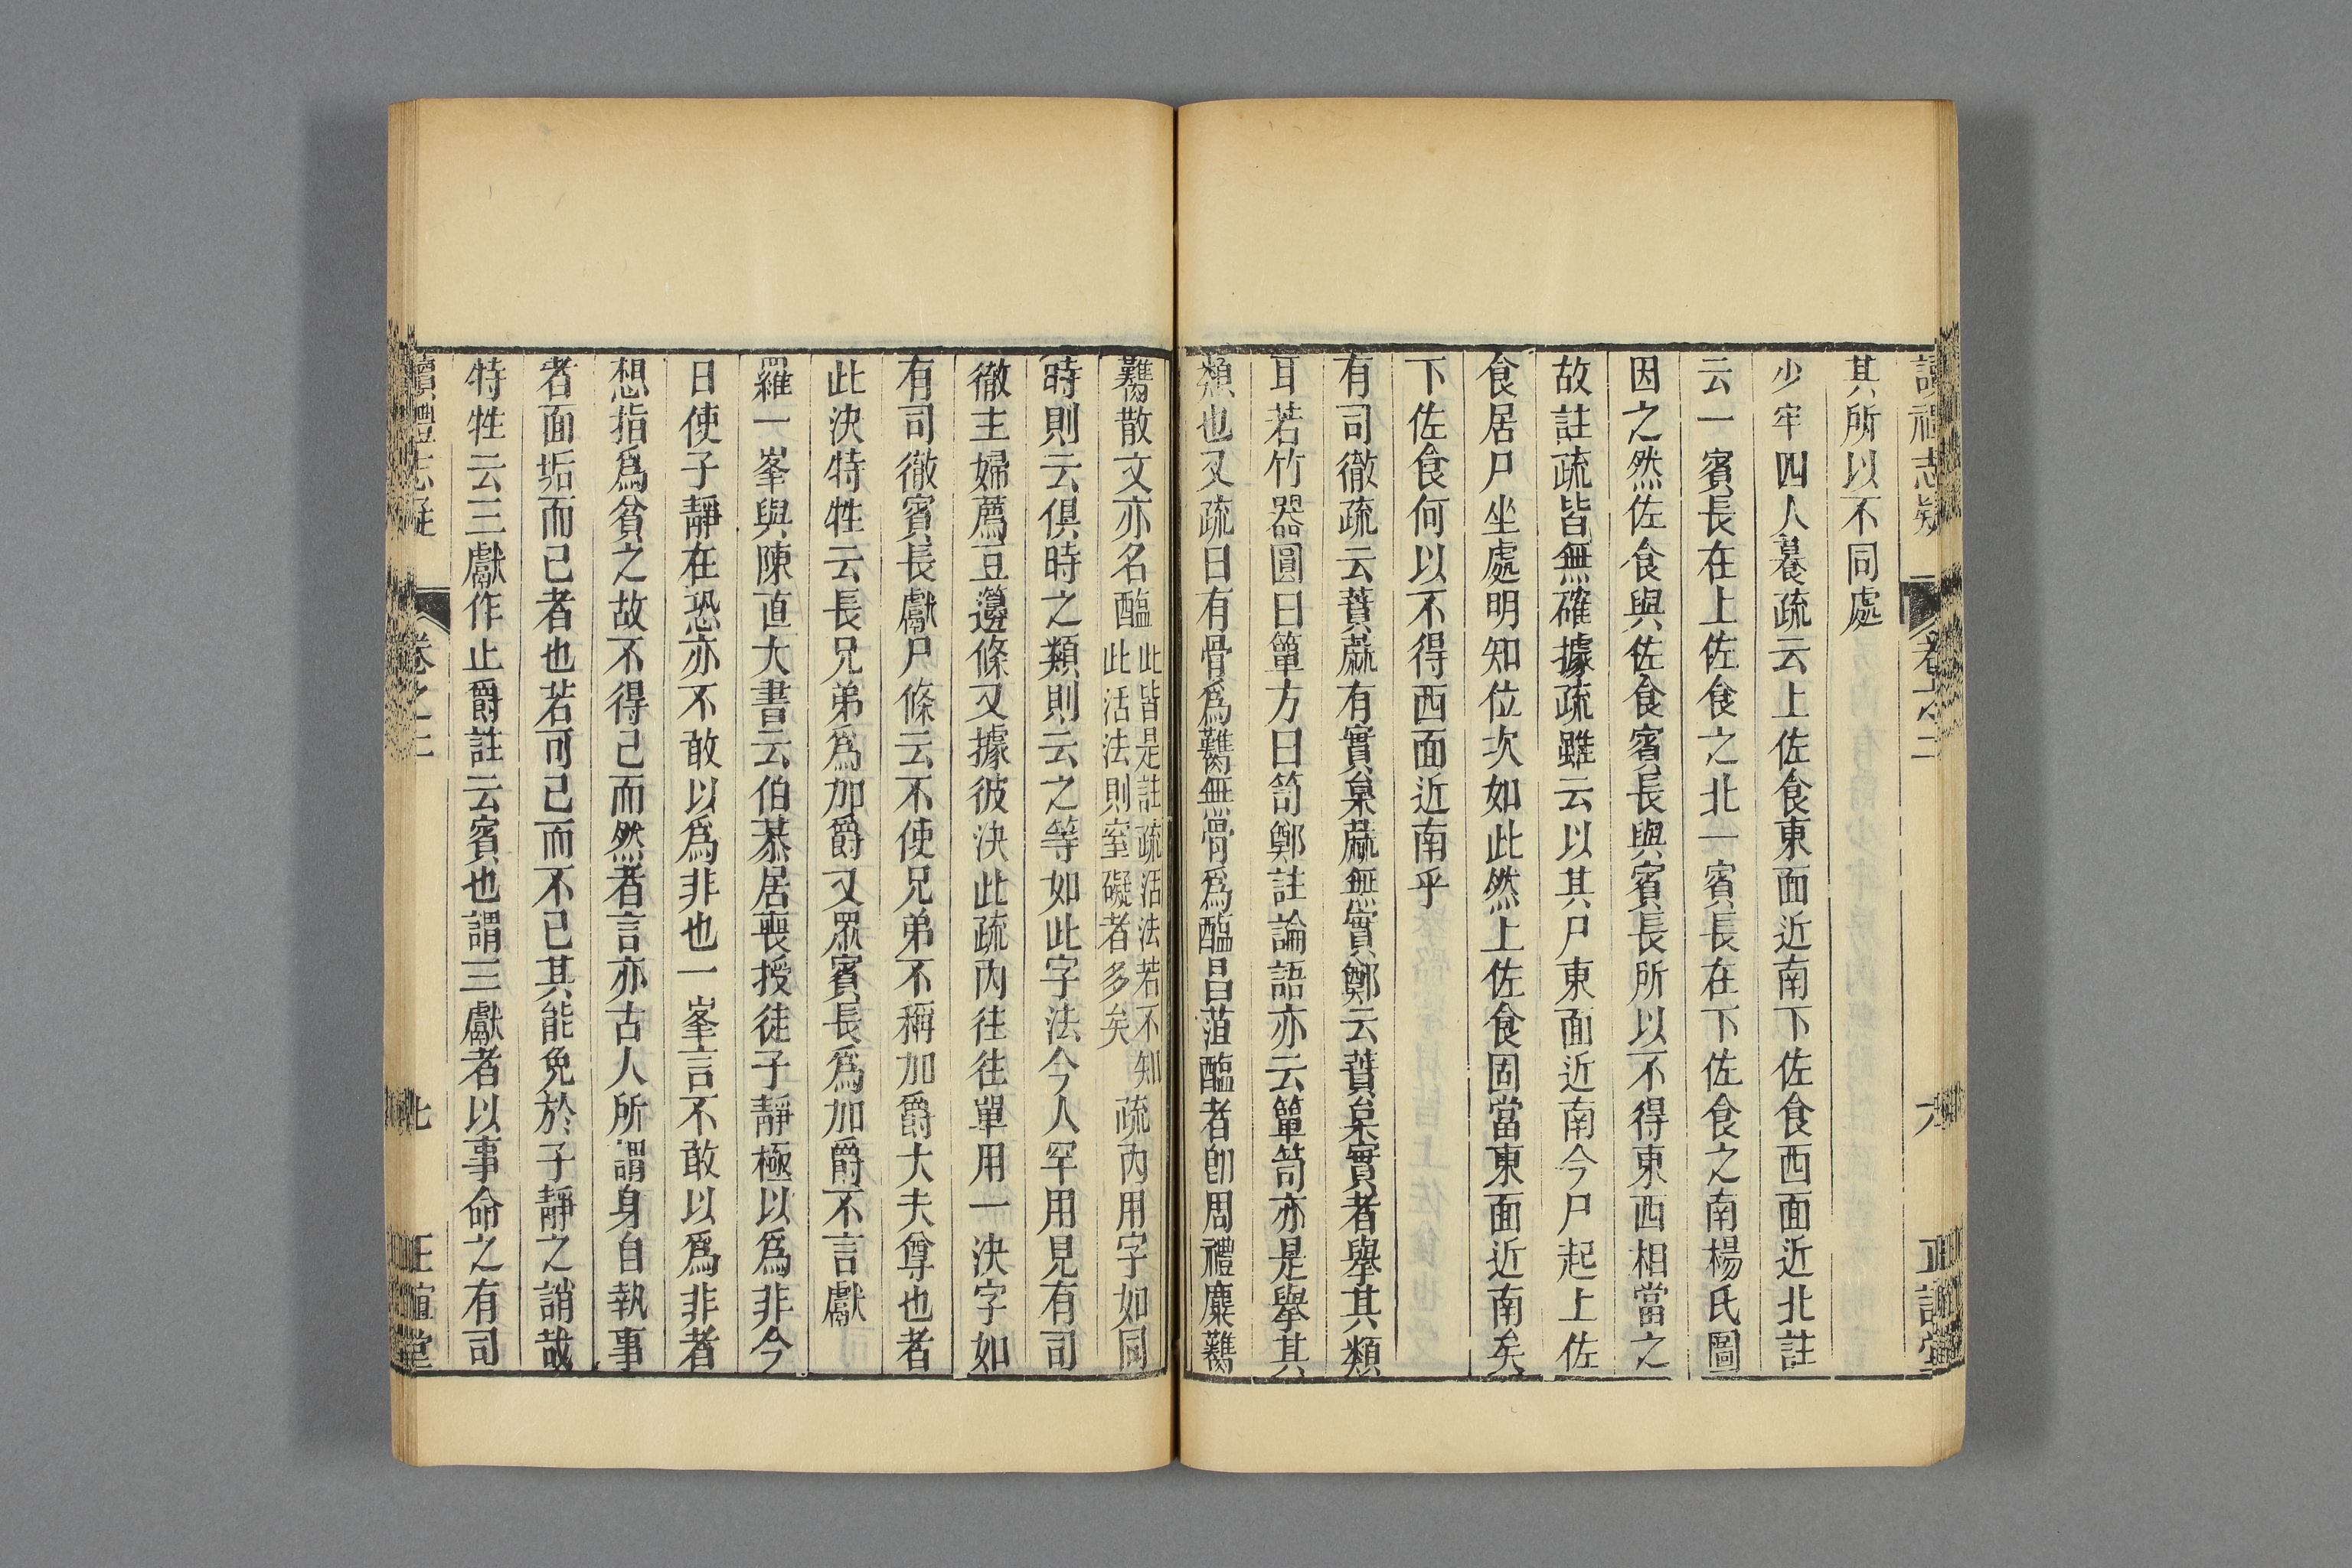 讀禮志疑 卷之二 六 正誼堂
其所以不同處
少牢四人䬸疏云上佐食東面近南下佐食西面近北註
云一賓長在上佐食之北一賓長在下佐食之南楊氏圖
因之然佐食與佐食賓長與賓長所以不得東西相當之
故註疏皆無確據疏雖云以其尸東面近南今尸起上佐
食居尸坐處明知位次如此然上佐食固當東面近南矣
下佐食何以不得西面近南乎
有司徹疏云蕡蔴有實枲蔴無實鄭云蕡枲實者舉其類
耳若竹器圓曰簞方曰笥鄭註論語亦云簞笥亦是舉其
類也又疏曰有骨爲臡無骨爲醢昌菹醢者卽周禮麋臡
臡散文亦名醢此皆是註疏活法若不知此活法則窒礙者多矣疏內用字如同
時則云俱時之類則云之等如此字法今人罕用見有司
徹主婦薦豆籩條又據彼決此疏內往往單用一決字如
有司徹賓長獻尸條云不使兄弟不稱加爵大夫尊也者
此決特牲云長兄弟爲加爵又眾賓長爲加爵不言獻
羅一峯與陳直夫書云伯恭居喪授徒子靜極以爲非今
日使子靜在恐亦不敢以爲非也一峯言不敢以爲非者
想指爲貧之故不得已而然者言亦古人所謂身自執事
者面垢而已者也若可已而不已其能免於子靜之誚哉
特牲云三獻作止爵註云賓也謂三獻者以事命之有司
讀禮志疑 卷之二 七 正誼堂